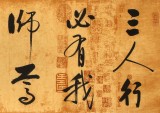 三人行
必有我
师焉